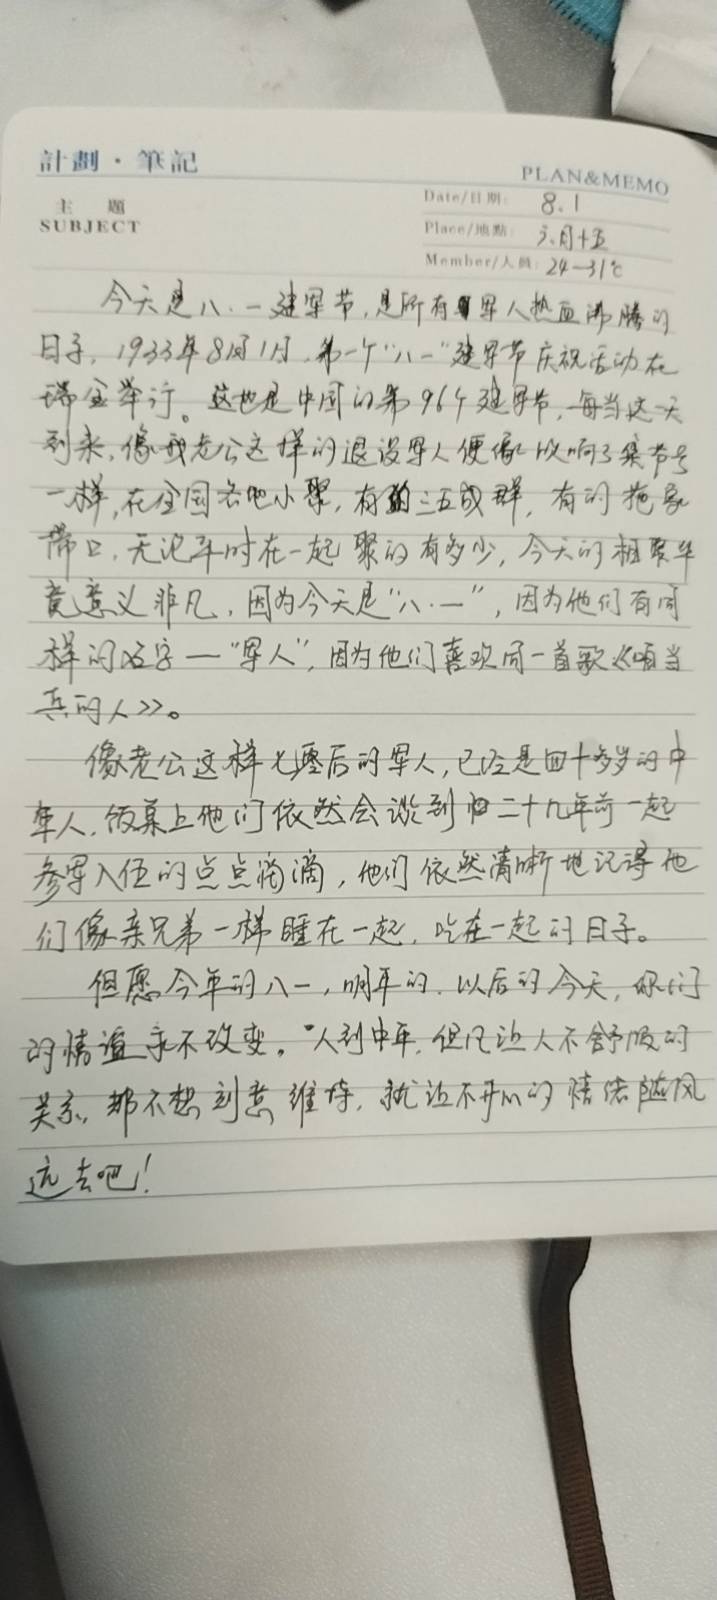 計劃·筆記
PLAN&MEMO
主 題
SUBJECT
Date/日期: 8.1
Place/地點: 六月十五
Member/人員: 24—31℃
今天是八·一建军节,是所有军人热血沸腾的
日子,1933年8月1日,第一个“八一”建军节庆祝活动在
瑞金举行。这也是中国的第96个建军节,每当这一天
到来,像我老公这样的退役军人便像吹响了集节号
一样,在全国各地小聚,有的三五成群,有的拖家
带口,无论平时在一起聚的有多少,今天的相聚毕
竟意义非凡,因为今天是“八·一”,因为他们有同
样的名字—“军人”,因为他们喜欢同一首歌《咱当
兵的人》。
像老公这样七零后的军人,已经是四十多岁的中
年人,饭桌上他们依然会谈到归二十九年前一起
参军入伍的点点滴滴,他们依然清晰地记得他
们像亲兄弟一样睡在一起,吃在一起的日子。
但愿今年的八一,明年的,以后的今天,你们
的情谊永不改变。“人到中年,但凡让人不舒服的
关系,都不想刻意维持,就让不开心的情绪随风
远去吧!